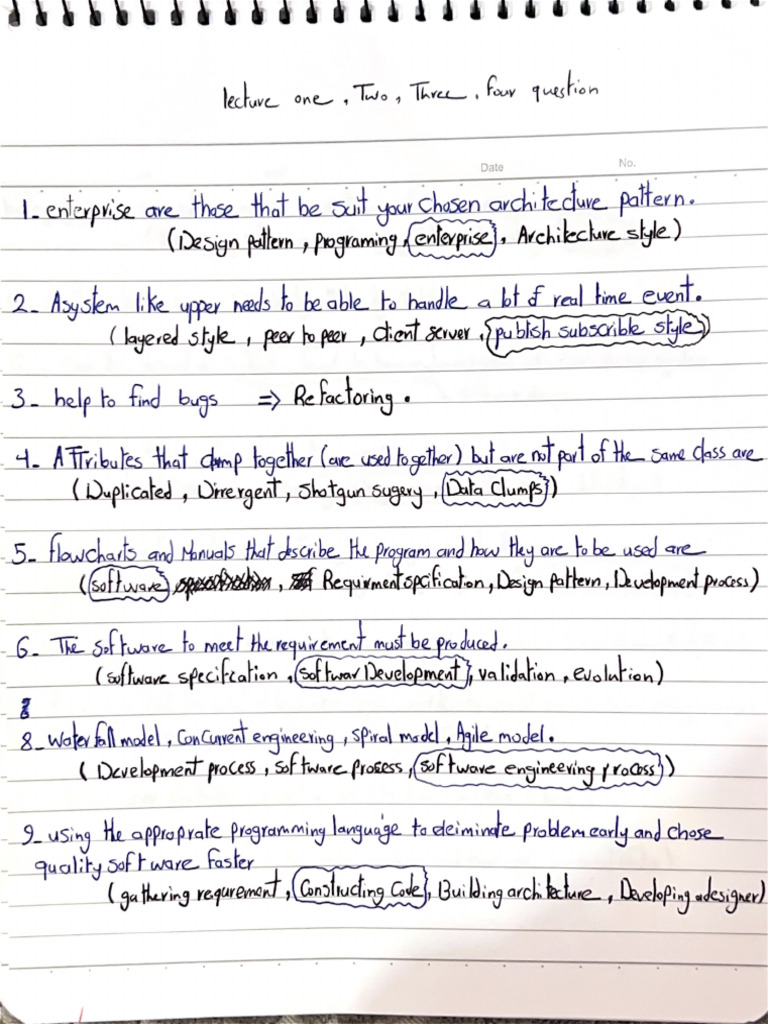 lecture one, Two, Three, four question
Date No.
1_ enterprise are those that be suit your chosen architecture pattern.
(Design pattern, programing, enterprise, Architecture style)
2_ Asystem like upper needs to be able to handle a lot of real time event.
(layered style, peer to peer, client server, publish subscrible style)
3_ help to find bugs => Refactoring.
4_ ATTributes that clump together (are used together) but are not part of the same class are
(Duplicated, Divergent, Shotgun sugery, Data Clumps)
5_ flowcharts and Manuals that describe the program and how they are to be used are
(software, Requirmentspcification, Design pattern, Development process)
6_ The software to meet the requirement must be produced.
(software specifcation, Softwar Development, validation, evolution)
8
8_ water fall model, Concurrent engineering, spiral model, Agile model.
(Development process, software prosess, software engineering process)
9_ using the approprate programming language to deiminate problem early and chose
quality software faster
(gathering requrement, Constructing Code, Building architecture, Developing adesigner)